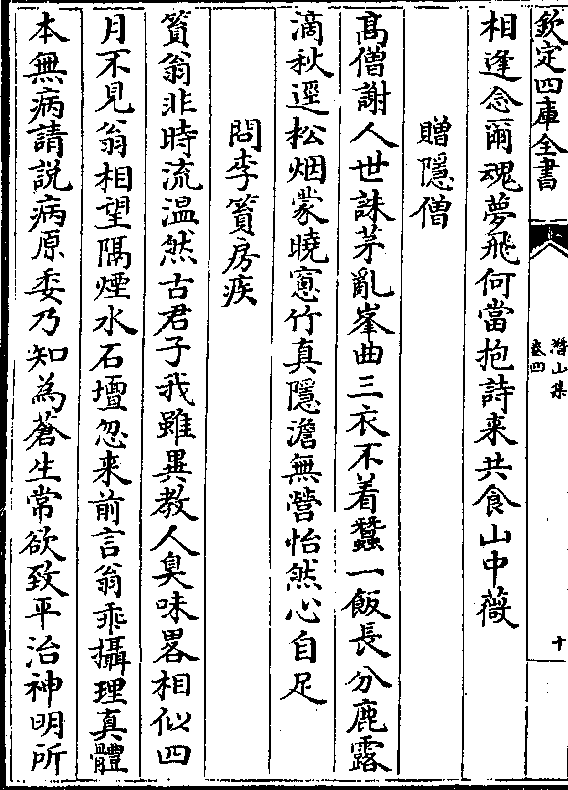 欽定四庫全書
潛山集
卷四
十
相逢念爾魂夢飛何當抱詩來共食山中薇
贈隱僧
髙僧謝人世誅茅亂峯曲三衣不着蠶一飯長分鹿露
滴秋逕松烟蒙曉窓竹真隱澹無營怡然心自足
問李篔房疾
篔翁非時流温然古君子我雖異教人臭味畧相似四
月不見翁相望隔煙水石壇忽来前言翁乖攝理真體
本無病請説病原委乃知為蒼生常欲致平治神明所